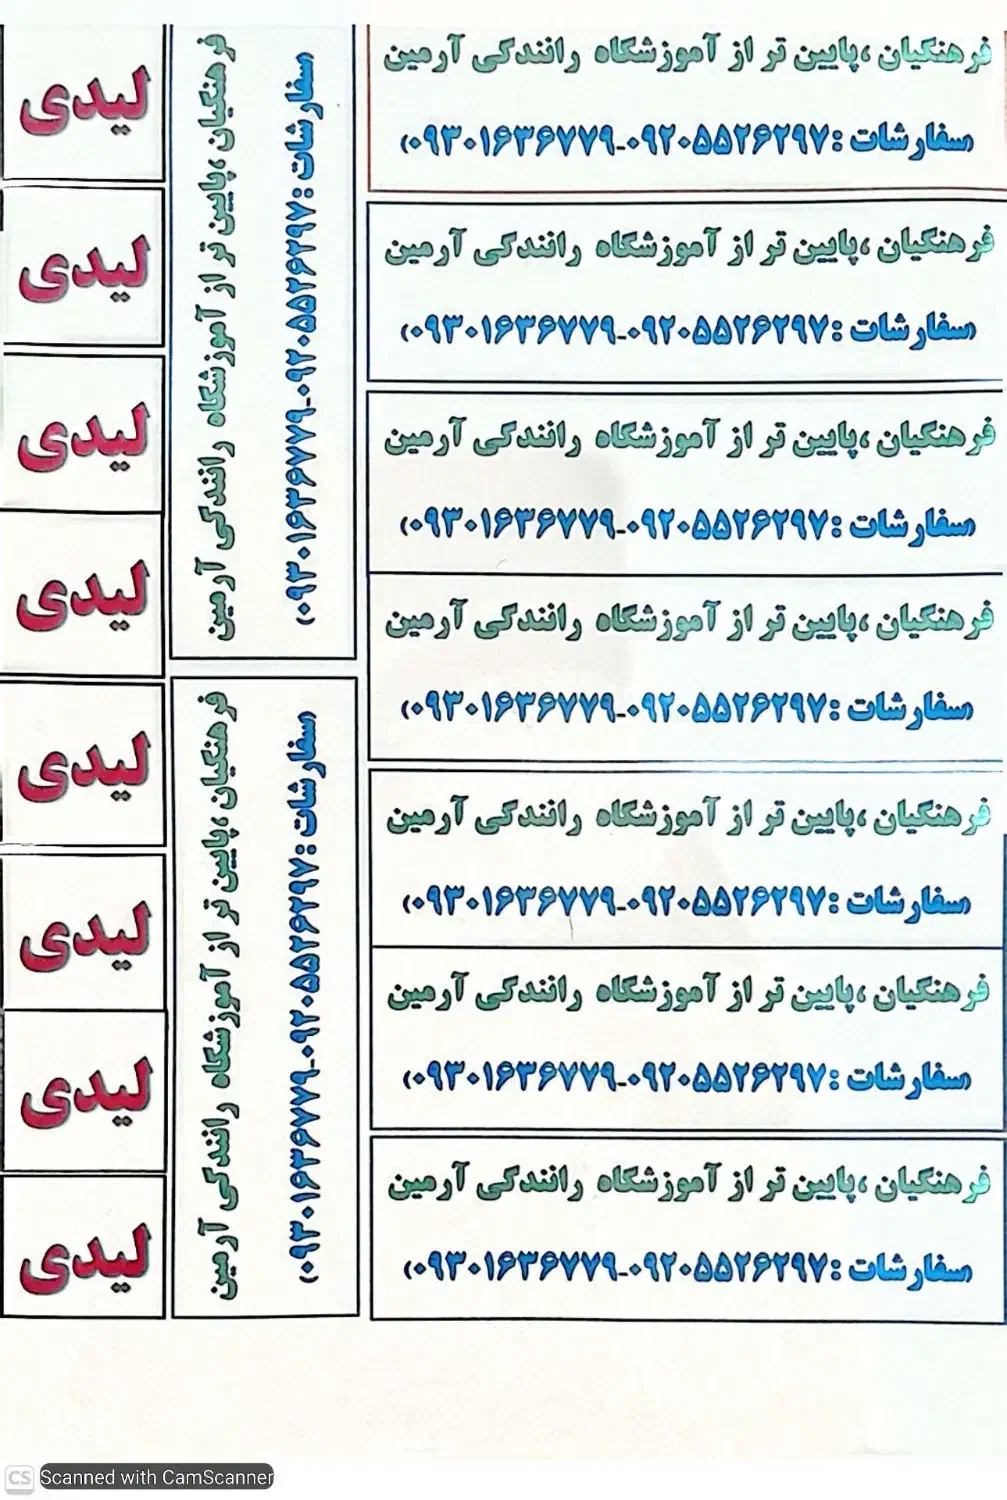 فرهنگیان ،پایین تر از آموزشگاه رانندگی آرمین
(سفارشات :۰۹۲۰۵۵۲۶۲۹۷-۰۹۳۰۱۶۳۶۷۷۹)
فرهنگیان ،پایین تر از آموزشگاه رانندگی آرمین
(سفارشات :۰۹۲۰۵۵۲۶۲۹۷-۰۹۳۰۱۶۳۶۷۷۹)
فرهنگیان ،پایین تر از آموزشگاه رانندگی آرمین
(سفارشات :۰۹۲۰۵۵۲۶۲۹۷-۰۹۳۰۱۶۳۶۷۷۹)
فرهنگیان ،پایین تر از آموزشگاه رانندگی آرمین
(سفارشات :۰۹۲۰۵۵۲۶۲۹۷-۰۹۳۰۱۶۳۶۷۷۹)
فرهنگیان ،پایین تر از آموزشگاه رانندگی آرمین
(سفارشات :۰۹۲۰۵۵۲۶۲۹۷-۰۹۳۰۱۶۳۶۷۷۹)
فرهنگیان ،پایین تر از آموزشگاه رانندگی آرمین
(سفارشات :۰۹۲۰۵۵۲۶۲۹۷-۰۹۳۰۱۶۳۶۷۷۹)
فرهنگیان ،پایین تر از آموزشگاه رانندگی آرمین
(سفارشات :۰۹۲۰۵۵۲۶۲۹۷-۰۹۳۰۱۶۳۶۷۷۹)
فرهنگیان ،پایین تر از آموزشگاه رانندگی آرمین
(سفارشات :۰۹۲۰۵۵۲۶۲۹۷-۰۹۳۰۱۶۳۶۷۷۹)
فرهنگیان ،پایین تر از آموزشگاه رانندگی آرمین
(سفارشات :۰۹۲۰۵۵۲۶۲۹۷-۰۹۳۰۱۶۳۶۷۷۹)
لیدی
لیدی
لیدی
لیدی
لیدی
لیدی
لیدی
لیدی
CS Scanned with CamScanner